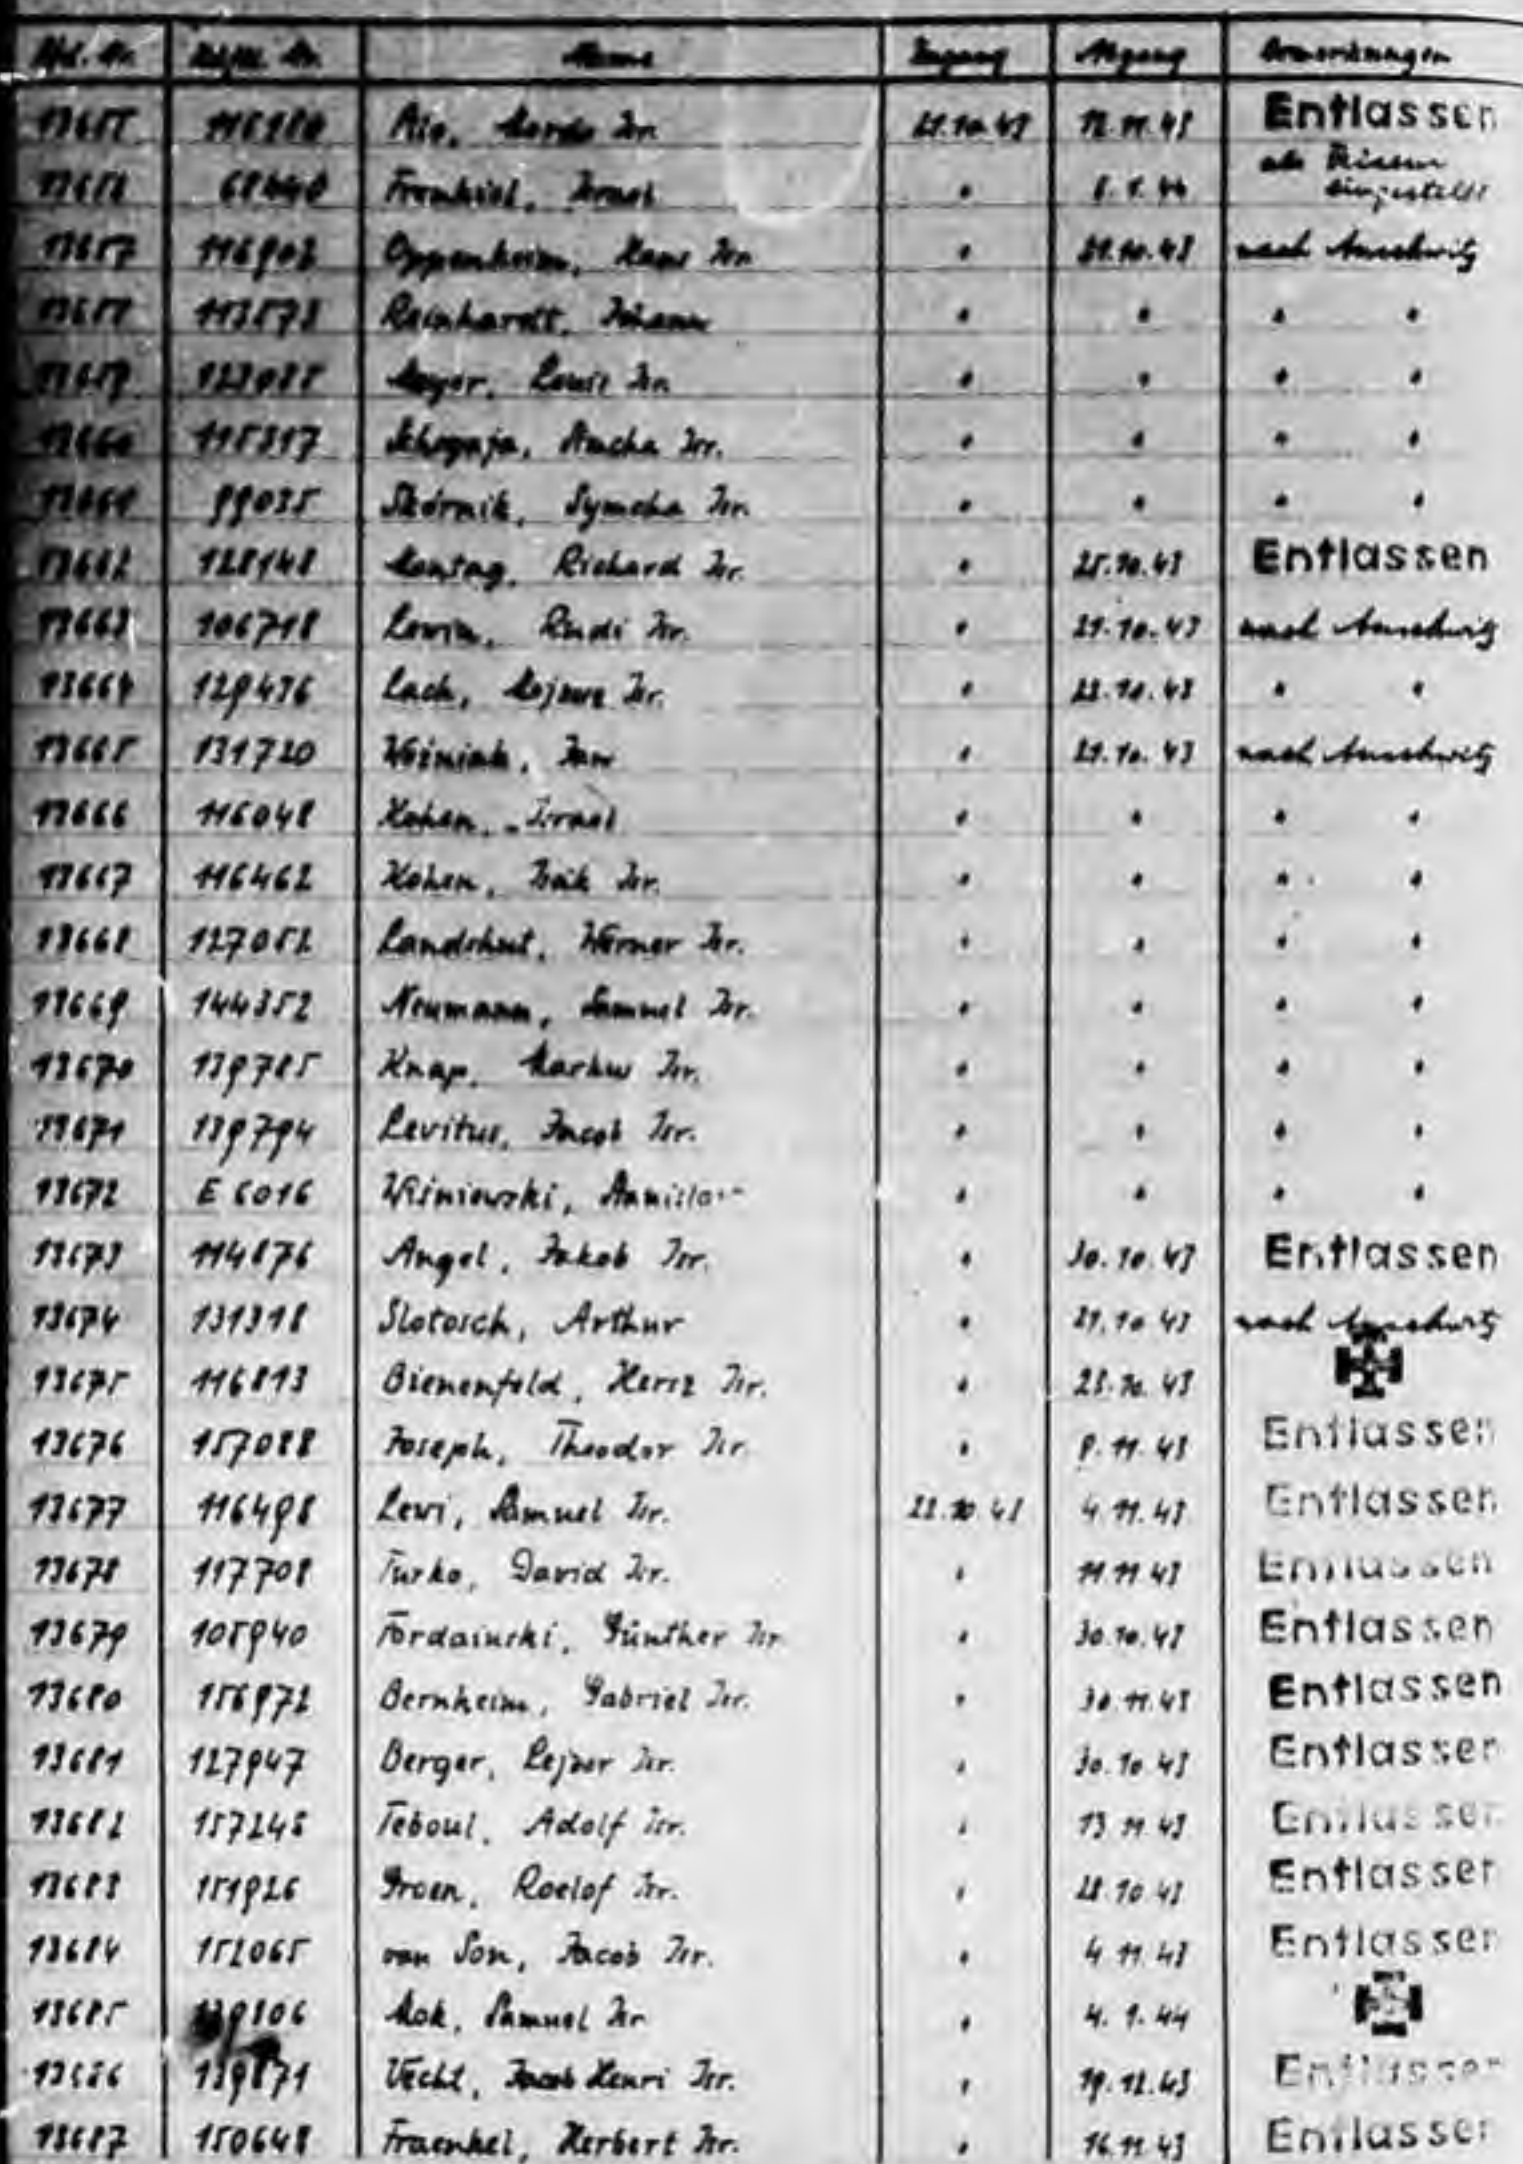 Lfd. Nr. Häftl. Nr. Name Zugang Abgang Bemerkungen
13655 Isr. 21.10.43 12.11.43 Entlassen
13656 68440 Frenkiel, Israel " eingestellt
13657 116902 Oppenheim, Hans Isr. " 21.10.43 nach Auschwitz
13658 113573 Reinhardt, Johann " " " "
13659 Meyer, Louis Isr. " " " "
13660 115317 Isr. " " " "
13661 99035 Skórnik, Symcha Isr. " " " "
13662 128148 Montag, Richard Isr. " 25.10.43 Entlassen
13663 106718 Lewin, Rudi Isr. " 21.10.43 nach Auschwitz
13664 129436 Lach, Isr. " 23.10.43 " "
13665 131720 Woźniak, Jan " 21.10.43 nach Auschwitz
13666 116048 Kohen, Israel " " " "
13667 116462 Kohen, Isr. " " " "
13668 127052 Landshut, Werner Isr. " " " "
13669 144352 Neumann, Samuel Isr. " " " "
13670 139785 Knap, Markus Isr. " " " "
13671 139794 Levitus, Jacob Isr. " " " "
13672 E 6016 Wiśniewski, " " " "
13673 114876 Angel, Jakob Isr. " 30.10.43 Entlassen
13674 131318 Slotosch, Arthur " 21.10.43 nach Auschwitz
13675 116813 Bienenfeld, Hersz Isr. " 23.10.43
13676 157088 Joseph, Theodor Isr. " 9.11.43 Entlassen
13677 116498 Lewi, Samuel Isr. 22.10.43 4.11.43 Entlassen
13678 117708 Turko, David Isr. " 11.11.43 Entlassen
13679 105940 Günther Isr. " 30.10.43 Entlassen
13680 156972 Bernheim, Gabriel Isr. " 30.11.43 Entlassen
13681 127947 Berger, Lejzor Isr. " 30.10.43 Entlassen
13682 157245 Teboul, Adolf Isr. " 13.11.43 Entlassen
13683 151926 Groen, Roelof Isr. " 28.10.43 Entlassen
13684 152065 van Son, Jacob Isr. " 4.11.43 Entlassen
13685 Mok, Samuel Isr. " 4.1.44
13686 139871 Vecht, Jacob Henri Isr. " 19.12.43 Entlassen
13687 150648 Fraenkel, Herbert Isr. " 16.11.43 Entlassen